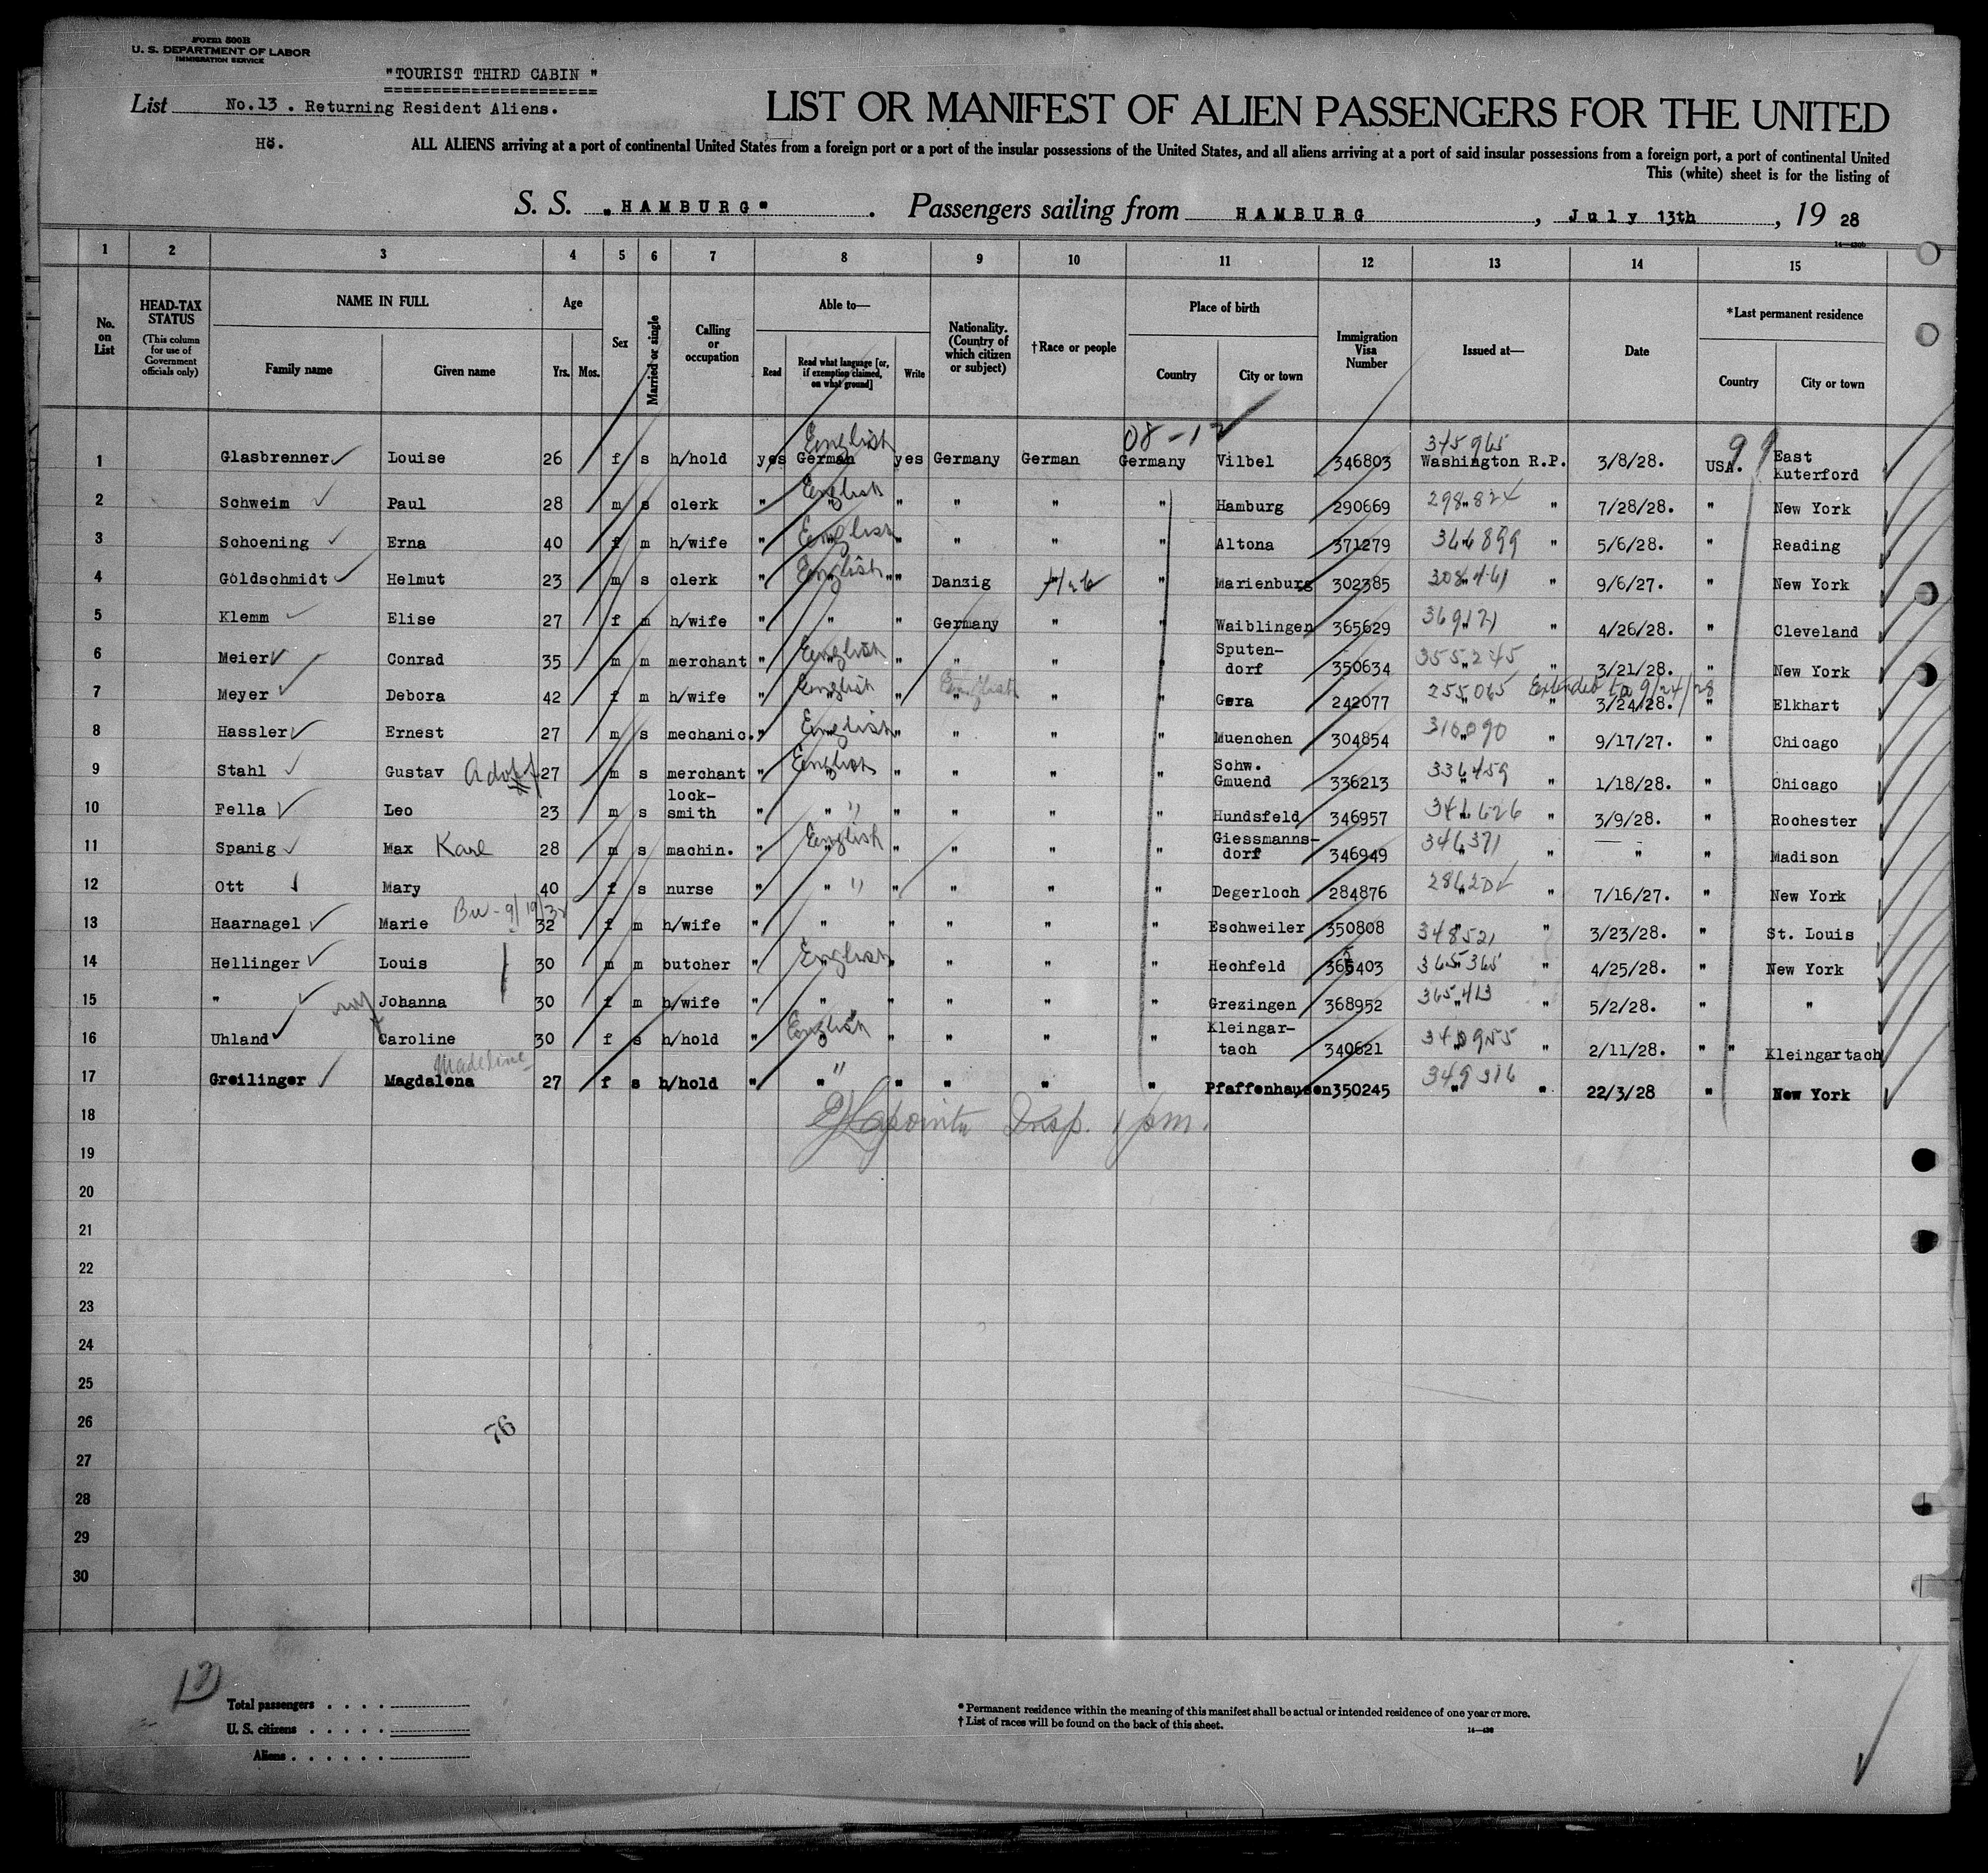 Form 500B
U. S. DEPARTMENT OF LABOR
IMMIGRATION SERVICE
"TOURIST THIRD CABIN "
List No.13 . Returning Resident Aliens.
LIST OR MANIFEST OF ALIEN PASSENGERS FOR THE UNITED
Hö.
ALL ALIENS arriving at a port of continental United States from a foreign port or a port of the insular possessions of the United States, and all aliens arriving at a port of said insular possessions from a foreign port, a port of continental United
This (white) sheet is for the listing of
S. S. "HAMBURG" . Passengers sailing from HAMBURG , July 13th , 19 28
1 2 3 4 5 6 7 8 9 10 11 12 13 14 15
No. on List
HEAD-TAX STATUS (This column for use of Government officials only)
NAME IN FULL Family name Given name
Age Yrs. Mos.
Sex
Married or single
Calling or occupation
Able to— Read Read what language [or, if exemption claimed, on what ground] Write
Nationality. (Country of which citizen or subject)
†Race or people
Place of birth Country City or town
Immigration Visa Number
Issued at—
Date
*Last permanent residence Country City or town
08-12 99
1 Glasbrenner Louise 26 f s h/hold yes German English yes Germany German Germany Vilbel 346803 345965 Washington R.P. 3/8/28. USA. East Kuterford
2 Schweim Paul 28 m s clerk " " English " " " " Hamburg 290669 298824 " " 7/28/28. " New York
3 Schoening Erna 40 f m h/wife " " English " " " " Altona 371279 " " 5/6/28. " Reading
4 Goldschmidt Helmut 23 m s clerk " " English "" Danzig " Marienburg 302385 " 9/6/27. " New York
5 Klemm Elise 27 f m h/wife " " " Germany " " Waiblingen 365629 " " 4/26/28. " Cleveland
6 Meier Conrad 35 m m merchant " " English " " " " Sputendorf 350634 355245 " " 3/21/28. " New York
7 Meyer Debora 42 f m h/wife " " English " " English " " Gera 242077 255065 " " Extended to 9/24/28 3/24/28. " Elkhart
8 Hassler Ernest 27 m s mechanic. " " English " " " " Muenchen 304854 310090 " " 9/17/27. " Chicago
9 Stahl Gustav Adolf 27 m s merchant " " English " " " " Schw. Gmuend 336213 336459 " " 1/18/28. " Chicago
10 Fella Leo 23 m s locksmith " " " " " " " Hundsfeld 346957 " " 3/9/28. " Rochester
11 Spanig Max Karl 28 m s machin. " " English " " " " Giessmannsdorf 346949 346371 " " " " Madison
12 Ott Mary 40 f s nurse " " " " " " " Degerloch 284876 " 7/16/27. " New York
13 Haarnagel Marie 32 f m h/wife " " " " " " Eschweiler 350808 348521 " " 3/23/28. " St. Louis
14 Hellinger Louis 30 m m butcher " " English " " " " Hechfeld 365403 365365 " " 4/25/28. " New York
15 " Johanna 30 f m h/wife " " " " " " Grezingen 368952 365413 " " 5/2/28. " "
16 Uhland Caroline 30 f s h/hold " " English " " " " Kleingartach 340621 340955 " " 2/11/28. " " Kleingartach
17 Greilinger Magdalena Madeline 27 f s h/hold " " " " " " " Pfaffenhausen 350245 349316 " " 22/3/28 " New York
18 Insp. 1 pm.
19
20
21
22
23
24
25
26
76
27
28
29
30
Total passengers . . . .
U. S. citizens . . . . .
Aliens . . . . . .
* Permanent residence within the meaning of this manifest shall be actual or intended residence of one year or more.
† List of races will be found on the back of this sheet.